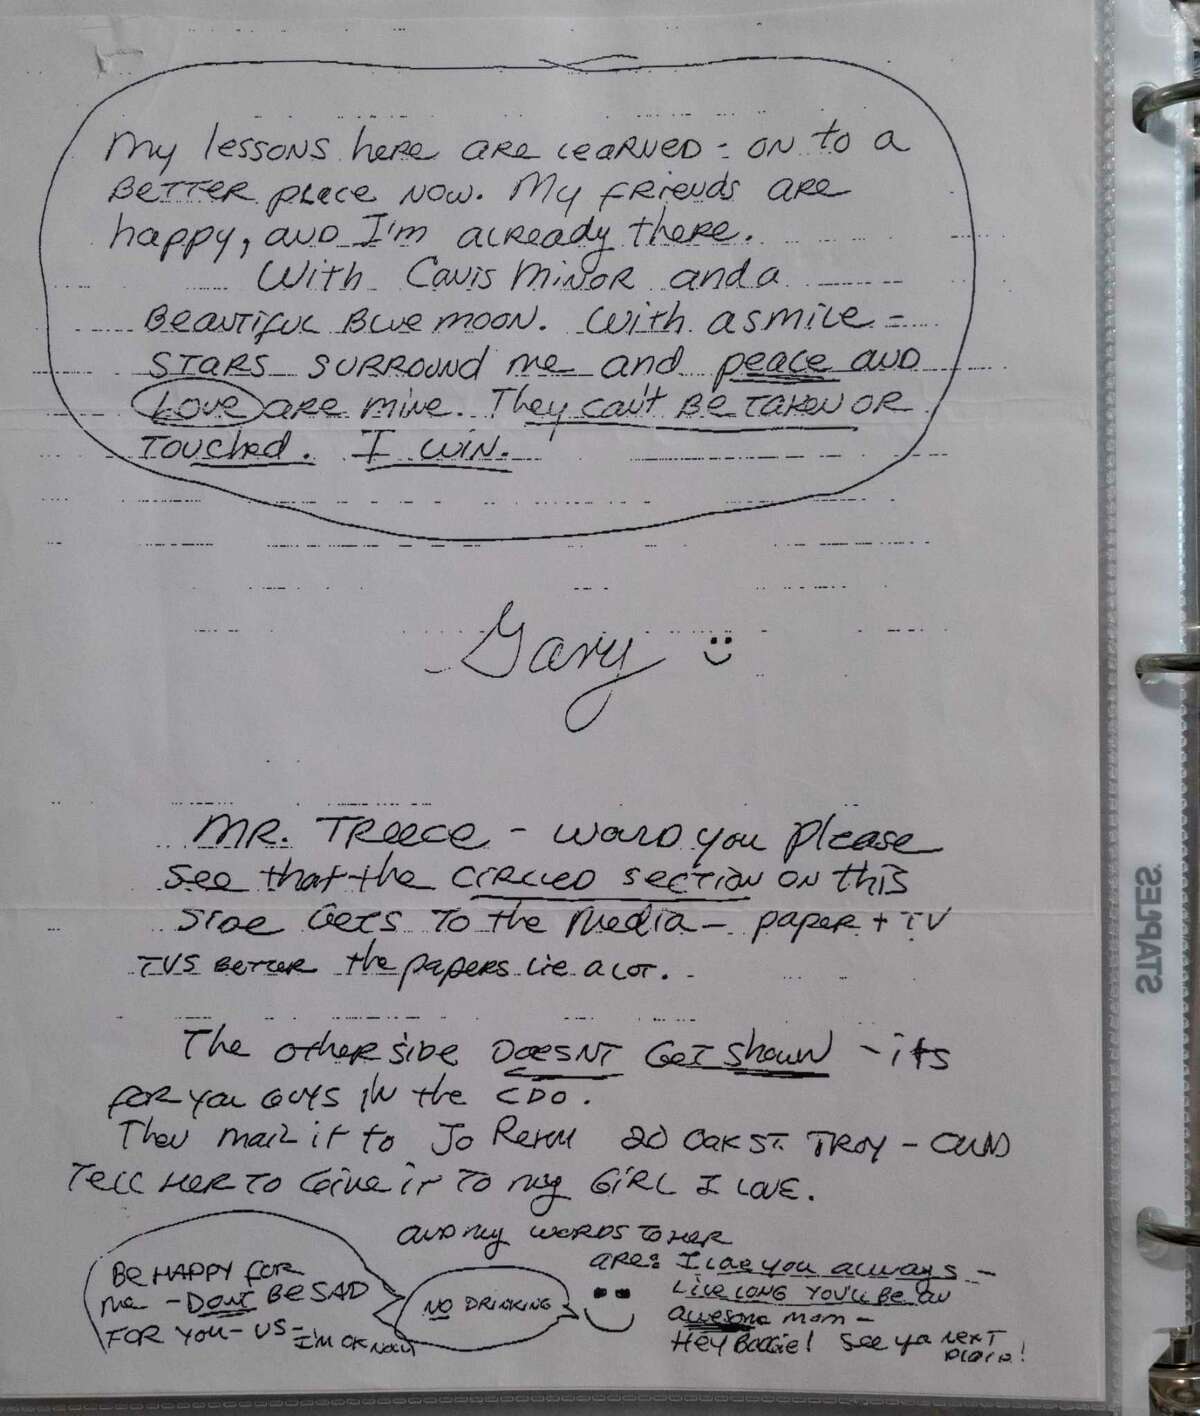 My lessons here are learned - on to a
better place now. My friends are
happy, and I'm already there.
With Canis Minor and a
beautiful blue moon. With a smile -
stars surround me and peace and
love are mine. They can't be taken or
touched. I win.
Gary
Mr. Treece - would you please
see that the circled section on this
side gets to the media - paper + TV
TVs better the papers lie a lot.
The other side doesnt get shown - its
for you guys in the CDO.
Then mail it to Jo 20 Oak St. Troy - and
tell her to give it to my girl I love.
and my words to her
are: I love you always -
Live long you'll be an
awesome mom -
Hey Boogie! See ya next
place!
Be happy for
me - Dont be sad
for you - us -
I'm ok now
No drinking
STAPLES